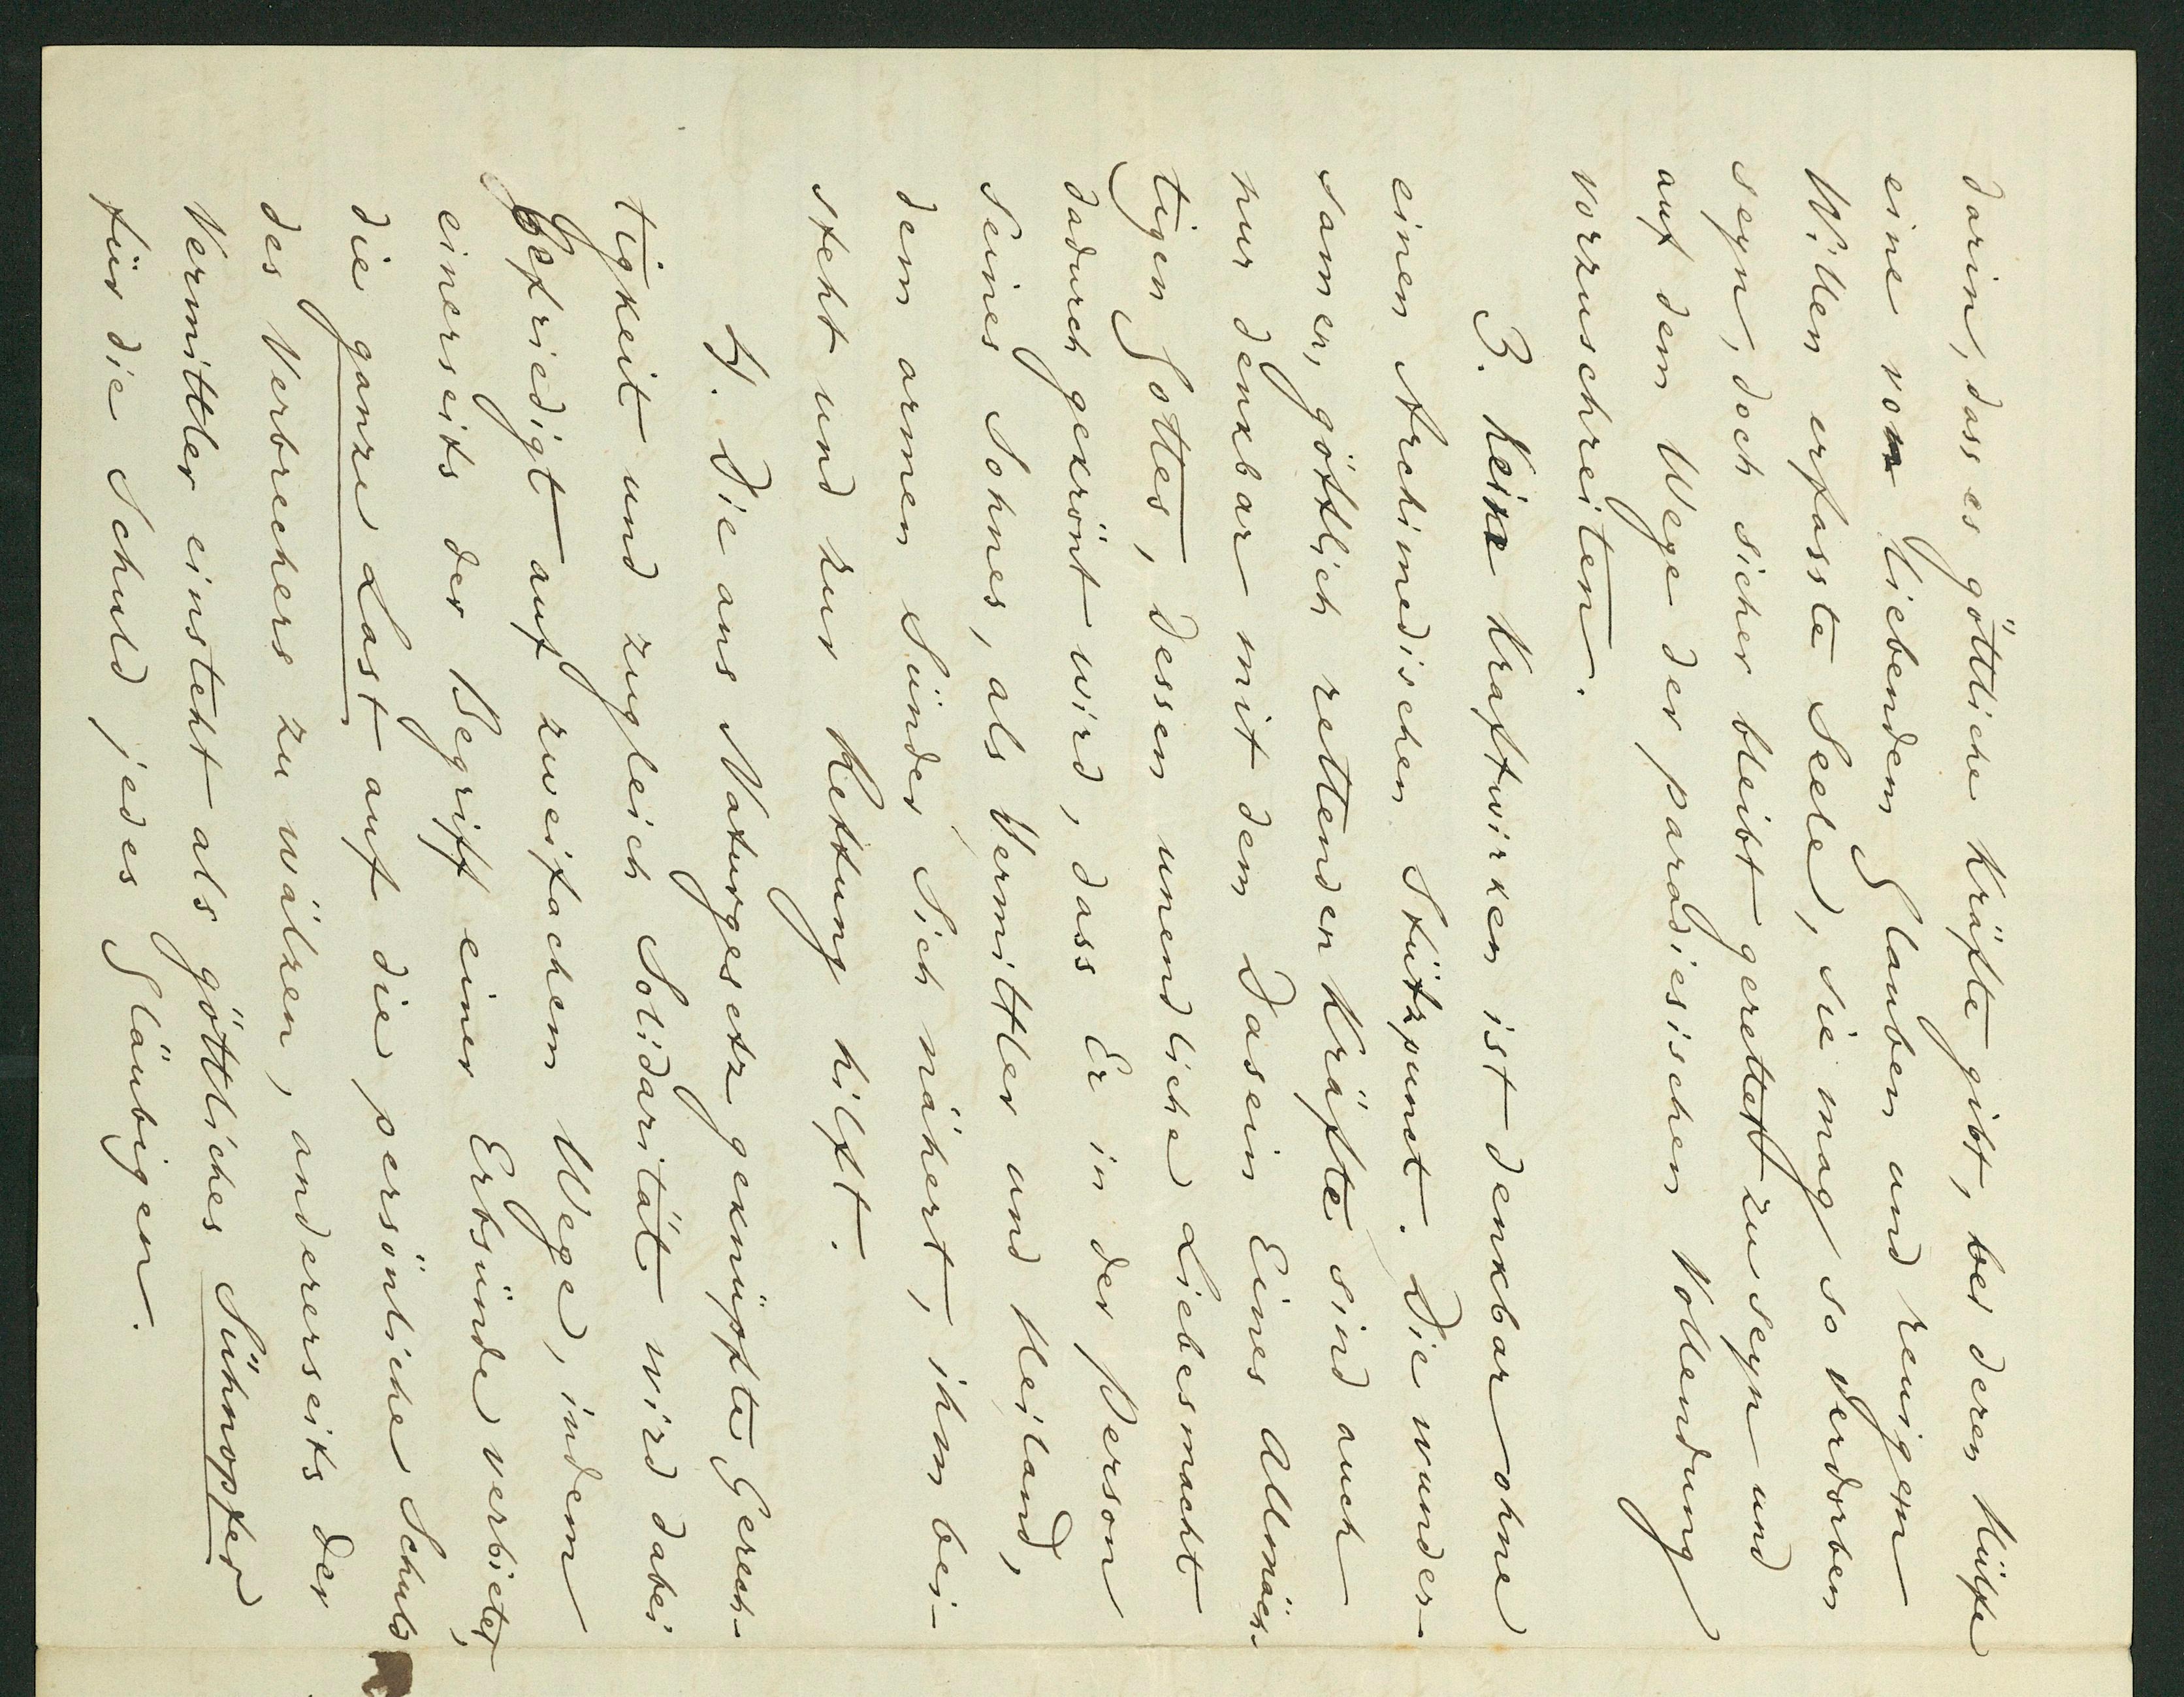 darin, dass es göttliche Kräfte gibt, bei deren Hülfe
eine von liebendem Glauben und reuigem
Willen erfasste Seele, sie mag so verdorben
seyn, doch sicher bleibt gerettet zu seyn und
auf dem Wege der paradiesischen Vollendung
vorzuschreiten.
3. Keine Kraftwirken ist denkbar ohne
einen Archimedischen Stützpunct. Die wunder-
samen, göttlich rettenden Kräfte sind auch
nur denkbar mit dem Dasein Eines Allmäch-
tigen Gottes, dessen unendliche Liebesmacht
dadurch gekrönt wird, dass Er in der Person
Seines Sohnes, als Vermittler und Heiland,
dem armen Sünder Sich nähert, ihm bei-
steht und zur Rettung hilft.
4. Die ans Naturgesetz geknüpfte Gerech-
tigkeit und zugleich Solidarität wird dabei
befriedigt auf zweifachem Wege, indem
einerseits der Begriff einer Erbsünde verbietet,
die ganze Last auf die persönliche Schuld
des Verbrechers zu wälzen, andererseits der
Vermittler einsteht als göttliches Sühnopfer
für die Schuld jedes Gläubigen.